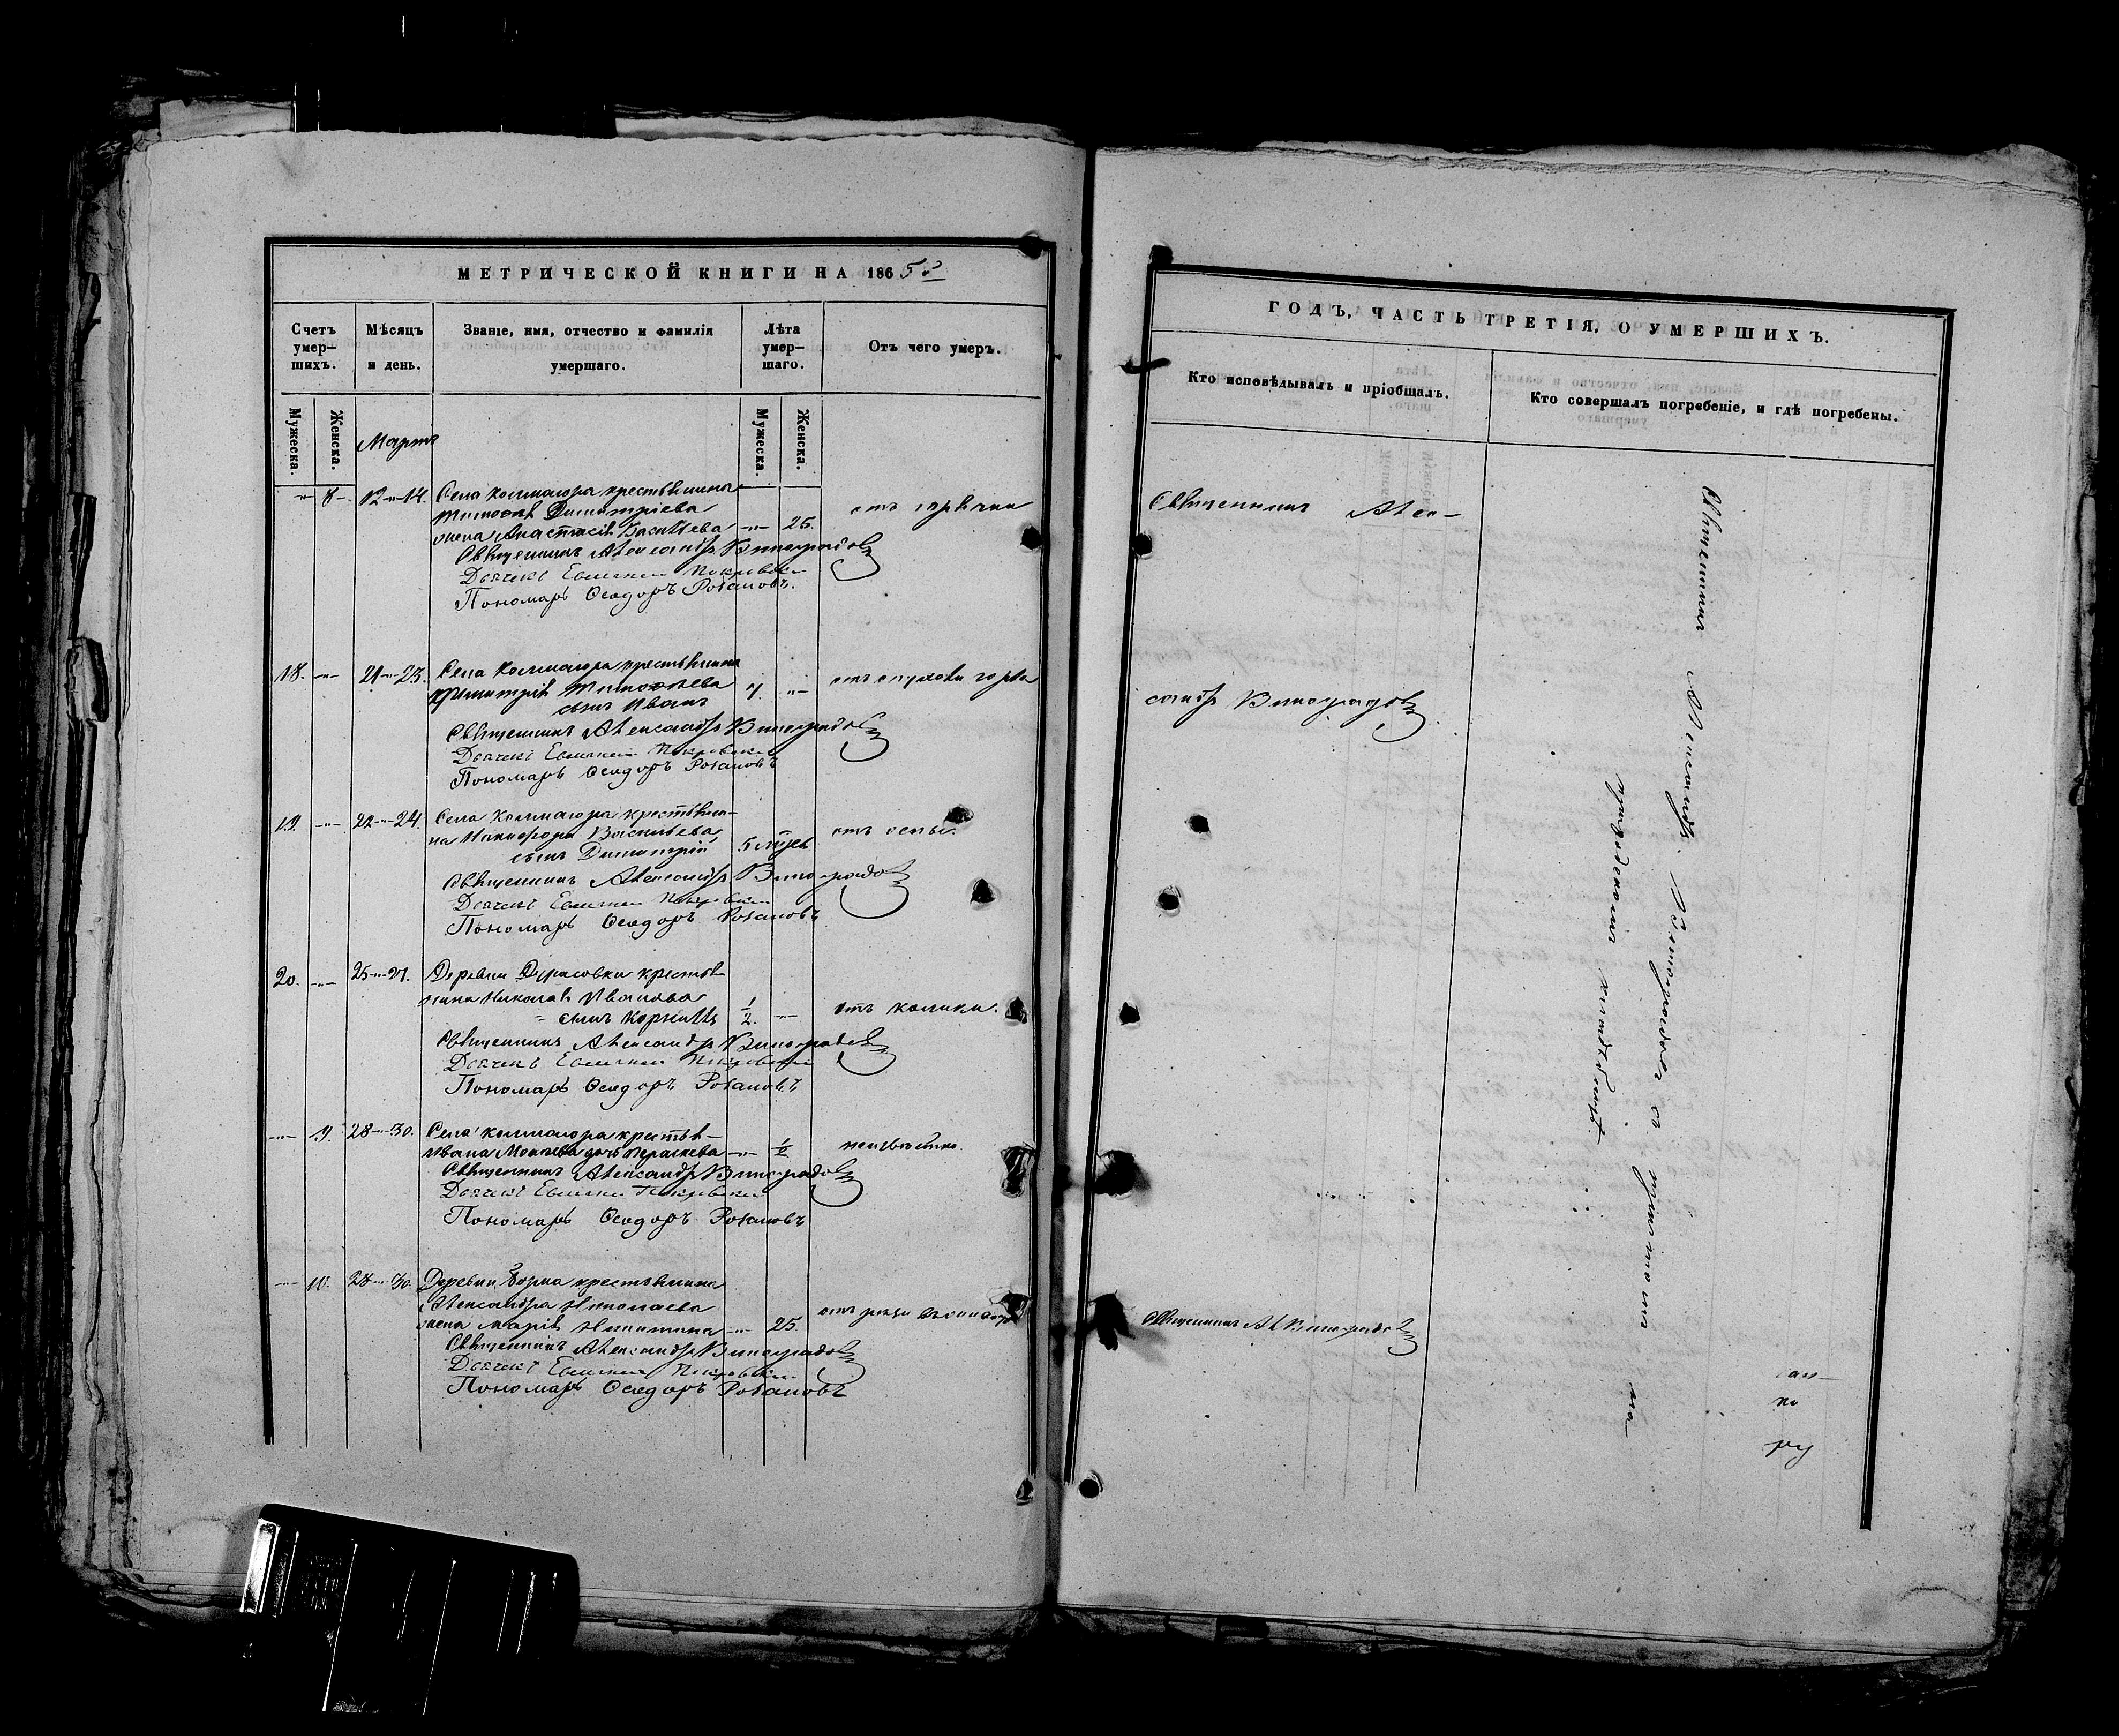 МЕТРИЧЕСКОЙ КНИГИ НА 1865й
Счетъ умер-шихъ.
Мѣсяцъ и день.
Званіе, имя, отчество и фамилія умершаго.
Лѣта умер-шаго.
Отъ чего умеръ.
Мужеска.
Женска.
Мужеска.
Женска.
Мартъ
-"- 8 - 12-"-14. Села Колмаюра крестьянина
Тимоѳея Димитріева
жена Анастасія Васильева -"- 25. отъ горячки
Священникъ Александръ Виноградовъ
Дьячекъ Евгеній Покровскій
Пономарь Ѳеодоръ Розановъ.
18. -"- 21-"-23. Села Колмаюра крестьянина
Димитрія Тимоѳеева 7. -"- отъ опухоли горла
сынъ Иванъ
Священникъ Александръ Виноградовъ
Дьячекъ Евгеній Покровскій
Пономарь Ѳеодоръ Розановъ
19. -"- 22-"-24. Села Колмаюра крестьяни-
на Никифора Васильева
сынъ Димитрій 5 мѣсяцевъ отъ оспы.
Священникъ Александръ Виноградовъ
Дьячекъ Евгеній Покровскій
Пономарь Ѳеодоръ Розановъ
20. -"- 25-"-27. Деревни Дурасовки крестья-
нина Николая Иванова
сынъ Корнилій 1/2. -"- отъ колики.
Священникъ Александръ Виноградовъ
Дьячекъ Евгеній Покровскій
Пономарь Ѳеодоръ Розановъ
-"- 9. 28-"-30. Села Колмаюра крестья-
Ивана дочь -"- 1/2 неизвѣстно.
Священникъ Александръ Виноградовъ
Дьячекъ Евгеній Покровскій
Пономарь Ѳеодоръ Розановъ
-"- 10. 28-"-30. Деревни крестьянина
Александра Николаева
жена Марія Никитина -"- 25. отъ
Священникъ Александръ Виноградовъ
Дьячекъ Евгеній Покровскій
Пономарь Ѳеодоръ Розановъ
ГОДЪ, ЧАСТЬ ТРЕТІЯ, О УМЕРШИХЪ.
Кто исповѣдывалъ и пріобщалъ.
Кто совершалъ погребеніе, и гдѣ погребены.
Священникъ Алек-
сандръ Виноградовъ
Священникъ Ал Виноградовъ
Священникъ Александръ Виноградовъ съ причтомъ на
приходскомъ кладбищѣ
но
ру